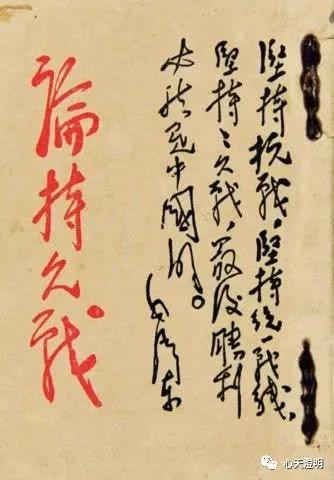 堅持抗战,堅持統一战线,
堅持持久战,最後勝利
必然是中國的。
毛澤東
論持久戰
心天澄明